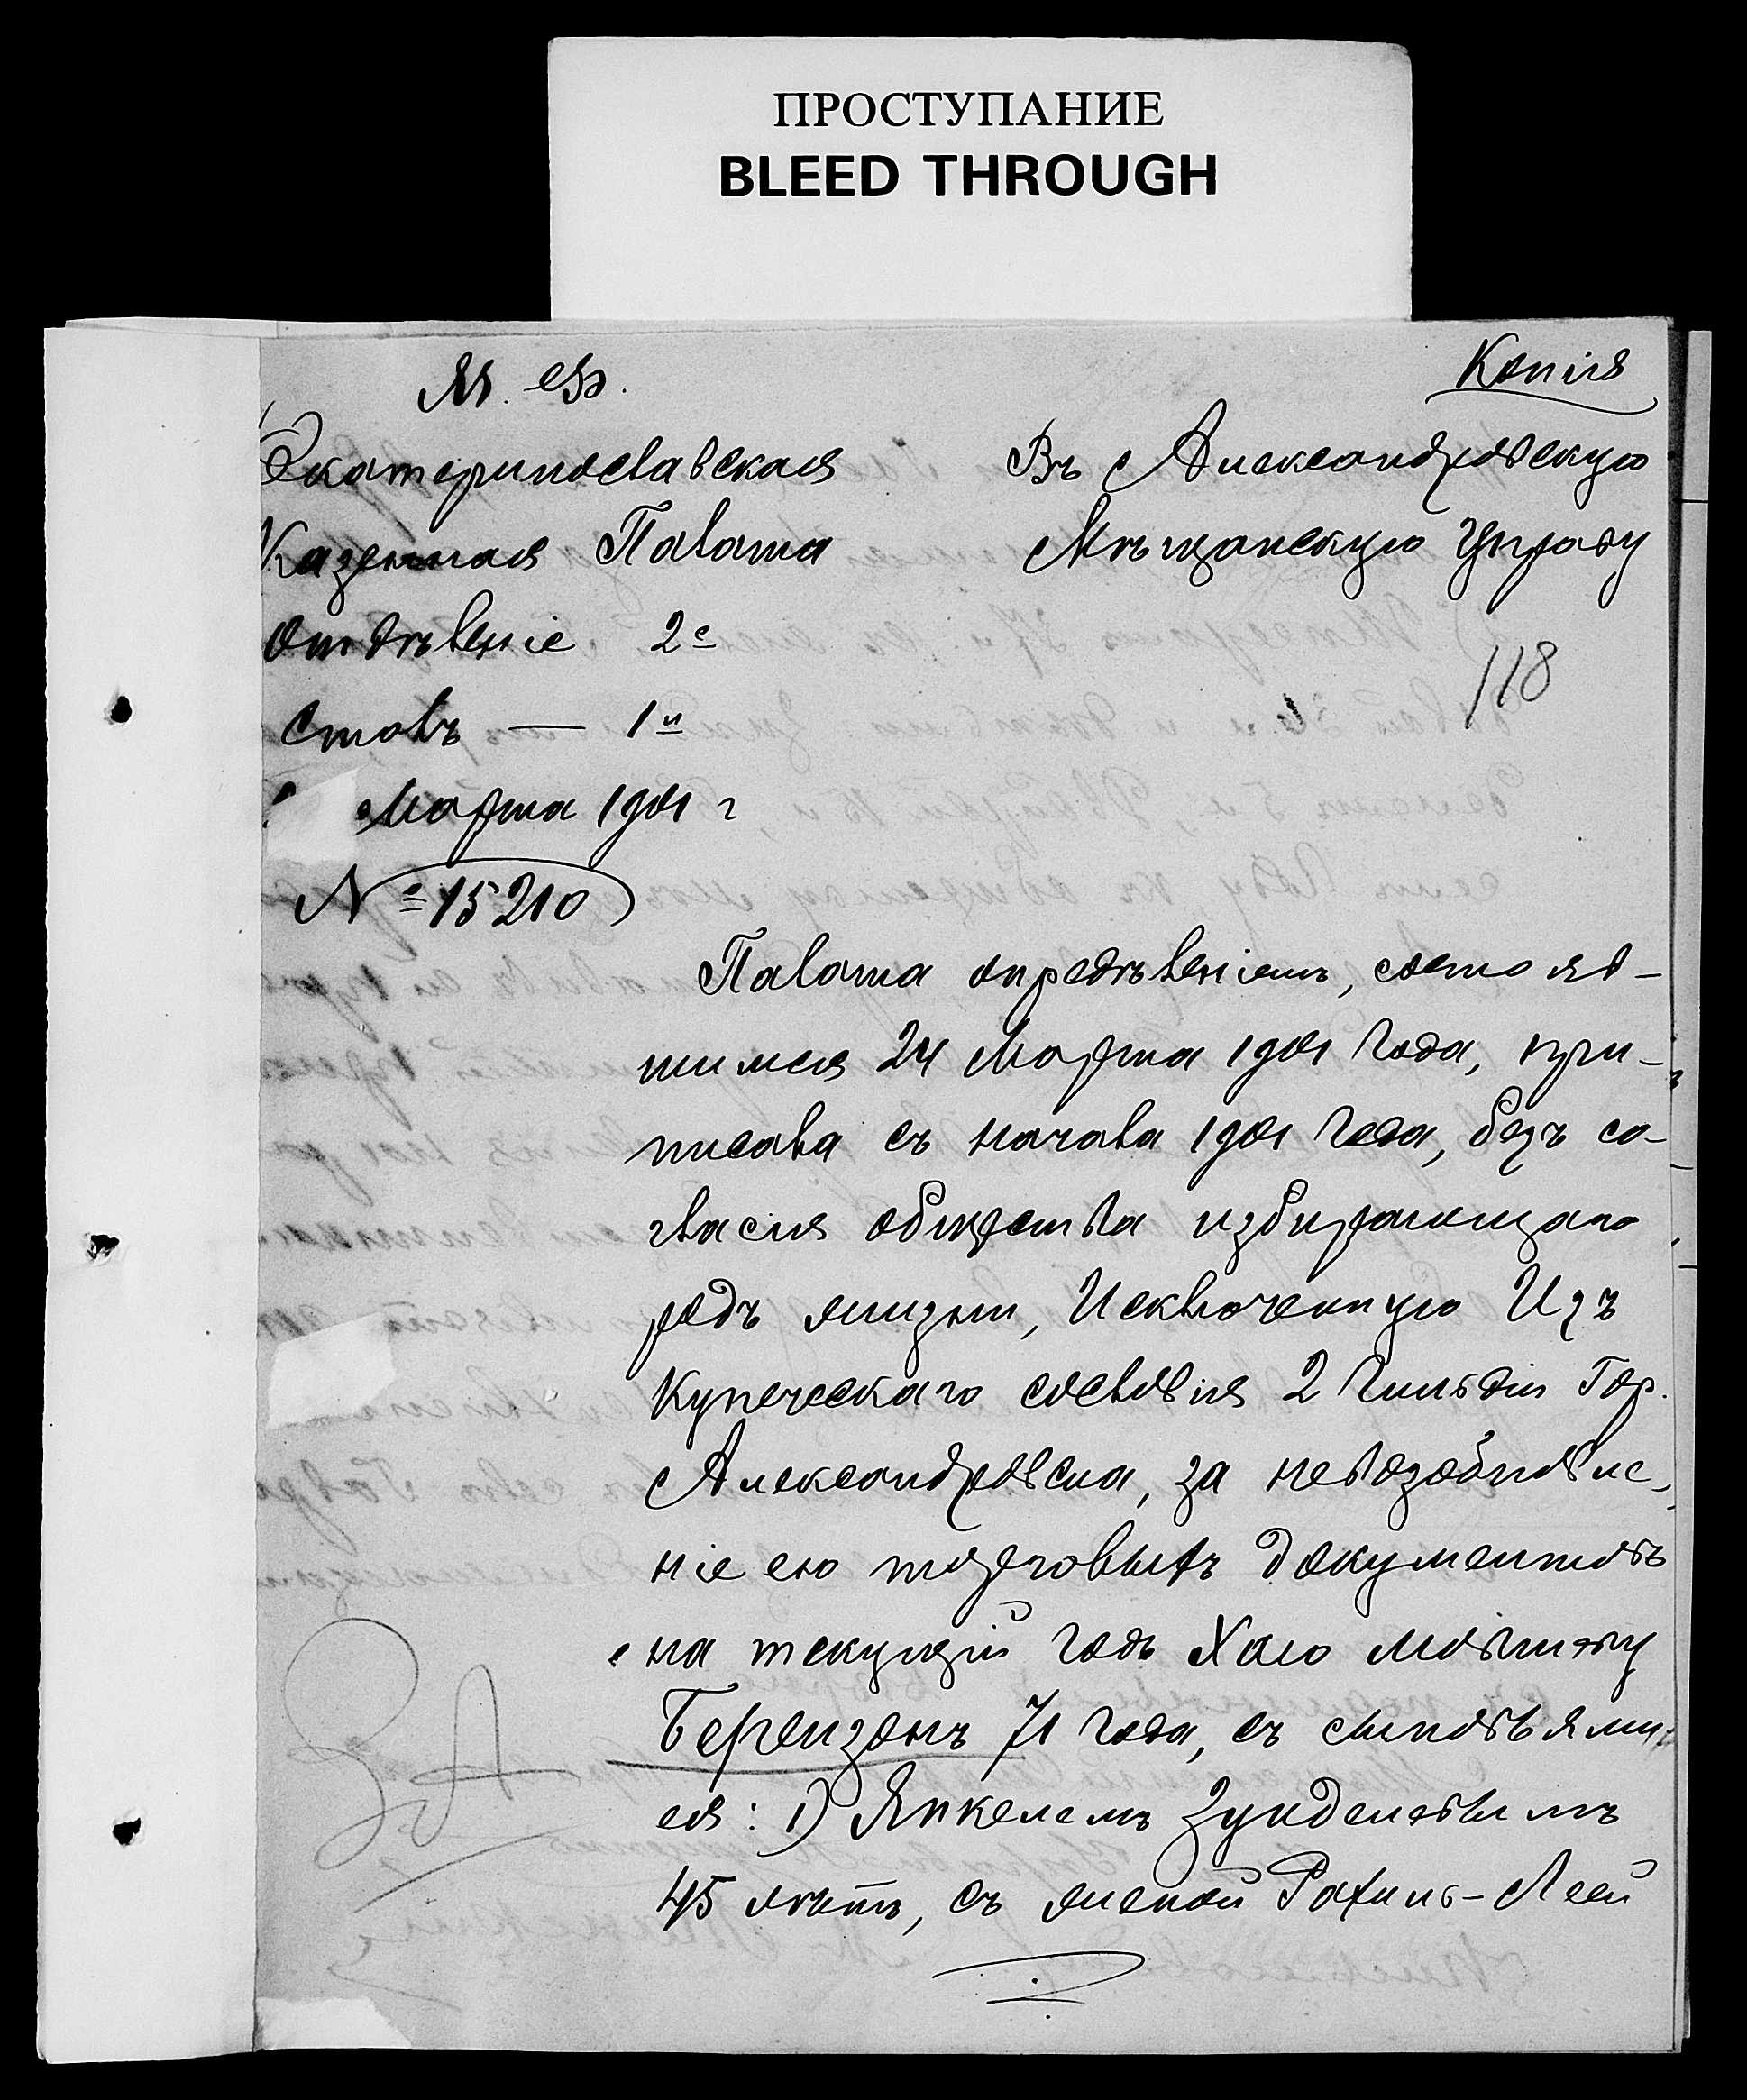 ПРОСТУПАНИЕ
BLEED THROUGH
М. Ф.
Копія
Екатеринославская
Казенная Палата
Отдѣленіе 2е
Столъ — 1й
Марта 1901 г
№ 15210
Въ Александровскую
Мѣщанскую Управу
118
Палата опредѣленіемъ, состояв-
шимся 24 Марта 1901 года, при-
писала съ начала 1901 года, безъ со-
гласія общества избирающаго
родъ жизни, Исключенную Изъ
Купеческаго сословія 2 гильдіи Гор.
Александровска, за невозобновле-
ніе ею торговыхъ документовъ
на текущій годъ Хаю Мовшеву
Берензонъ 71 года, съ сыновьями
ея: 1) Янкелемъ Зунделевымъ
45 лѣтъ, съ женой Рахиль-Леей